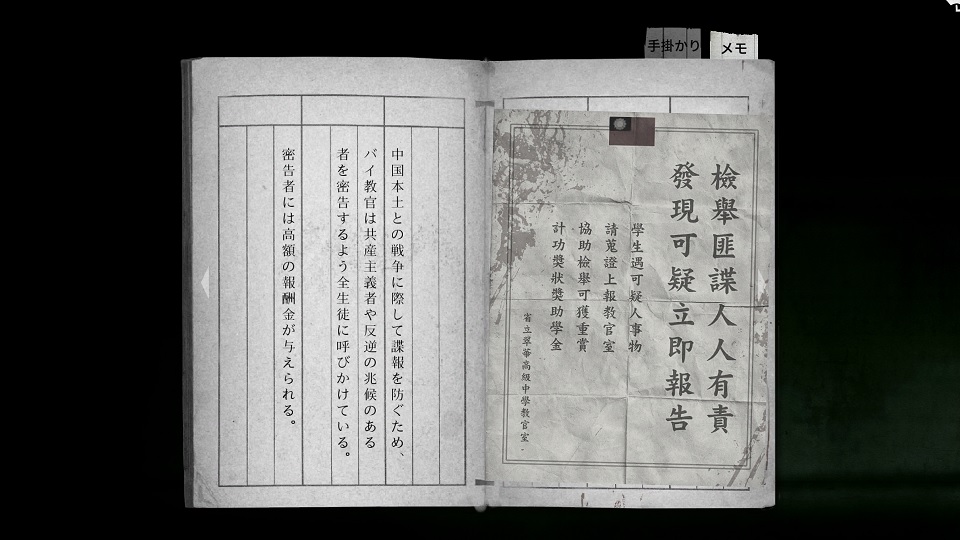 手掛かり
メモ
中国本土との戦争に際して諜報を防ぐため、
バイ教官は共産主義者や反逆の兆候のある
者を密告するよう全生徒に呼びかけている。
密告者には高額の報酬金が与えられる。
檢舉匪諜人人有責
發現可疑立即報告
學生遇可疑人事物
請蒐證上報教官室
協助檢舉可獲重賞
計功獎狀獎助學金
省立翠華高級中學教官室